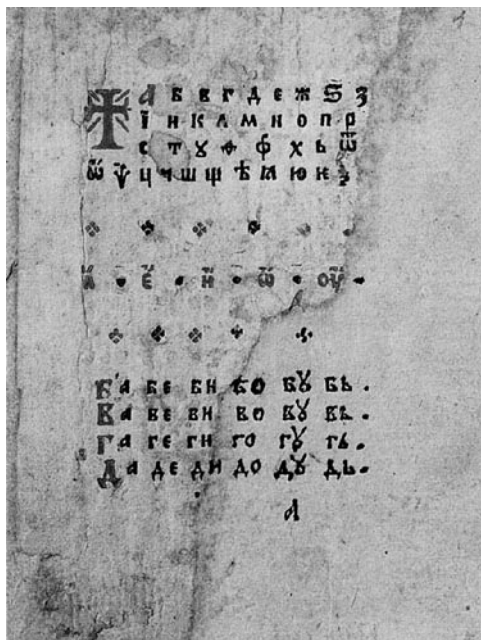 А Б В Г Д Е Ж Ѕ З
Ї И К Л М Н О П Р
С Т Ꙋ Ѳ Ф Х Ь Ѿ
Ѿ Ѱ Ц Ч Ш Щ Ѣ Ꙗ Ю
А • Е • И • Ѡ • ОУ •
Ба бе би бо бꙋ бь.
Ва ве ви во вꙋ вь.
Га ге ги го гꙋ гь.
Да де ди до дꙋ дь.
а